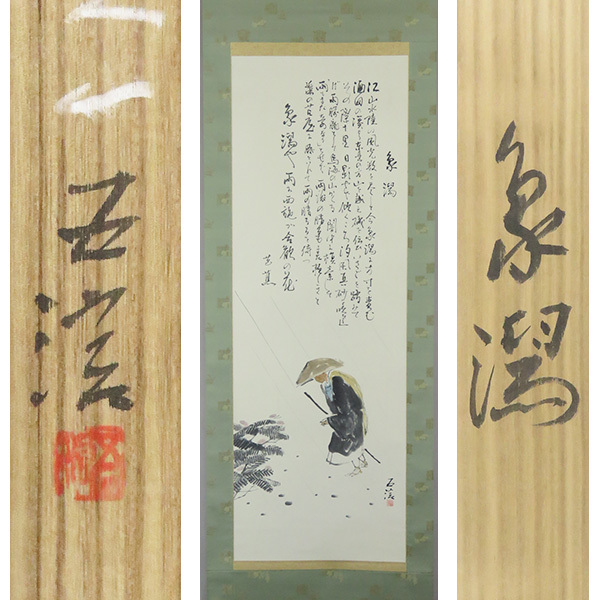 象潟
江山水陸の風光数を尽して今象潟に方寸を責む
酒田の湊より東北の方山を越え磯を伝ひいさごを踏みて
その際十里日影やや傾くころ汐風真砂を吹上
げ雨朦朧として鳥海の山かくる闇中に模索して
雨もまた奇なりとせば雨後の晴色
膝を入れて雨の晴るるを待つ
象潟や雨に西施が合歓の花
芭蕉
象潟